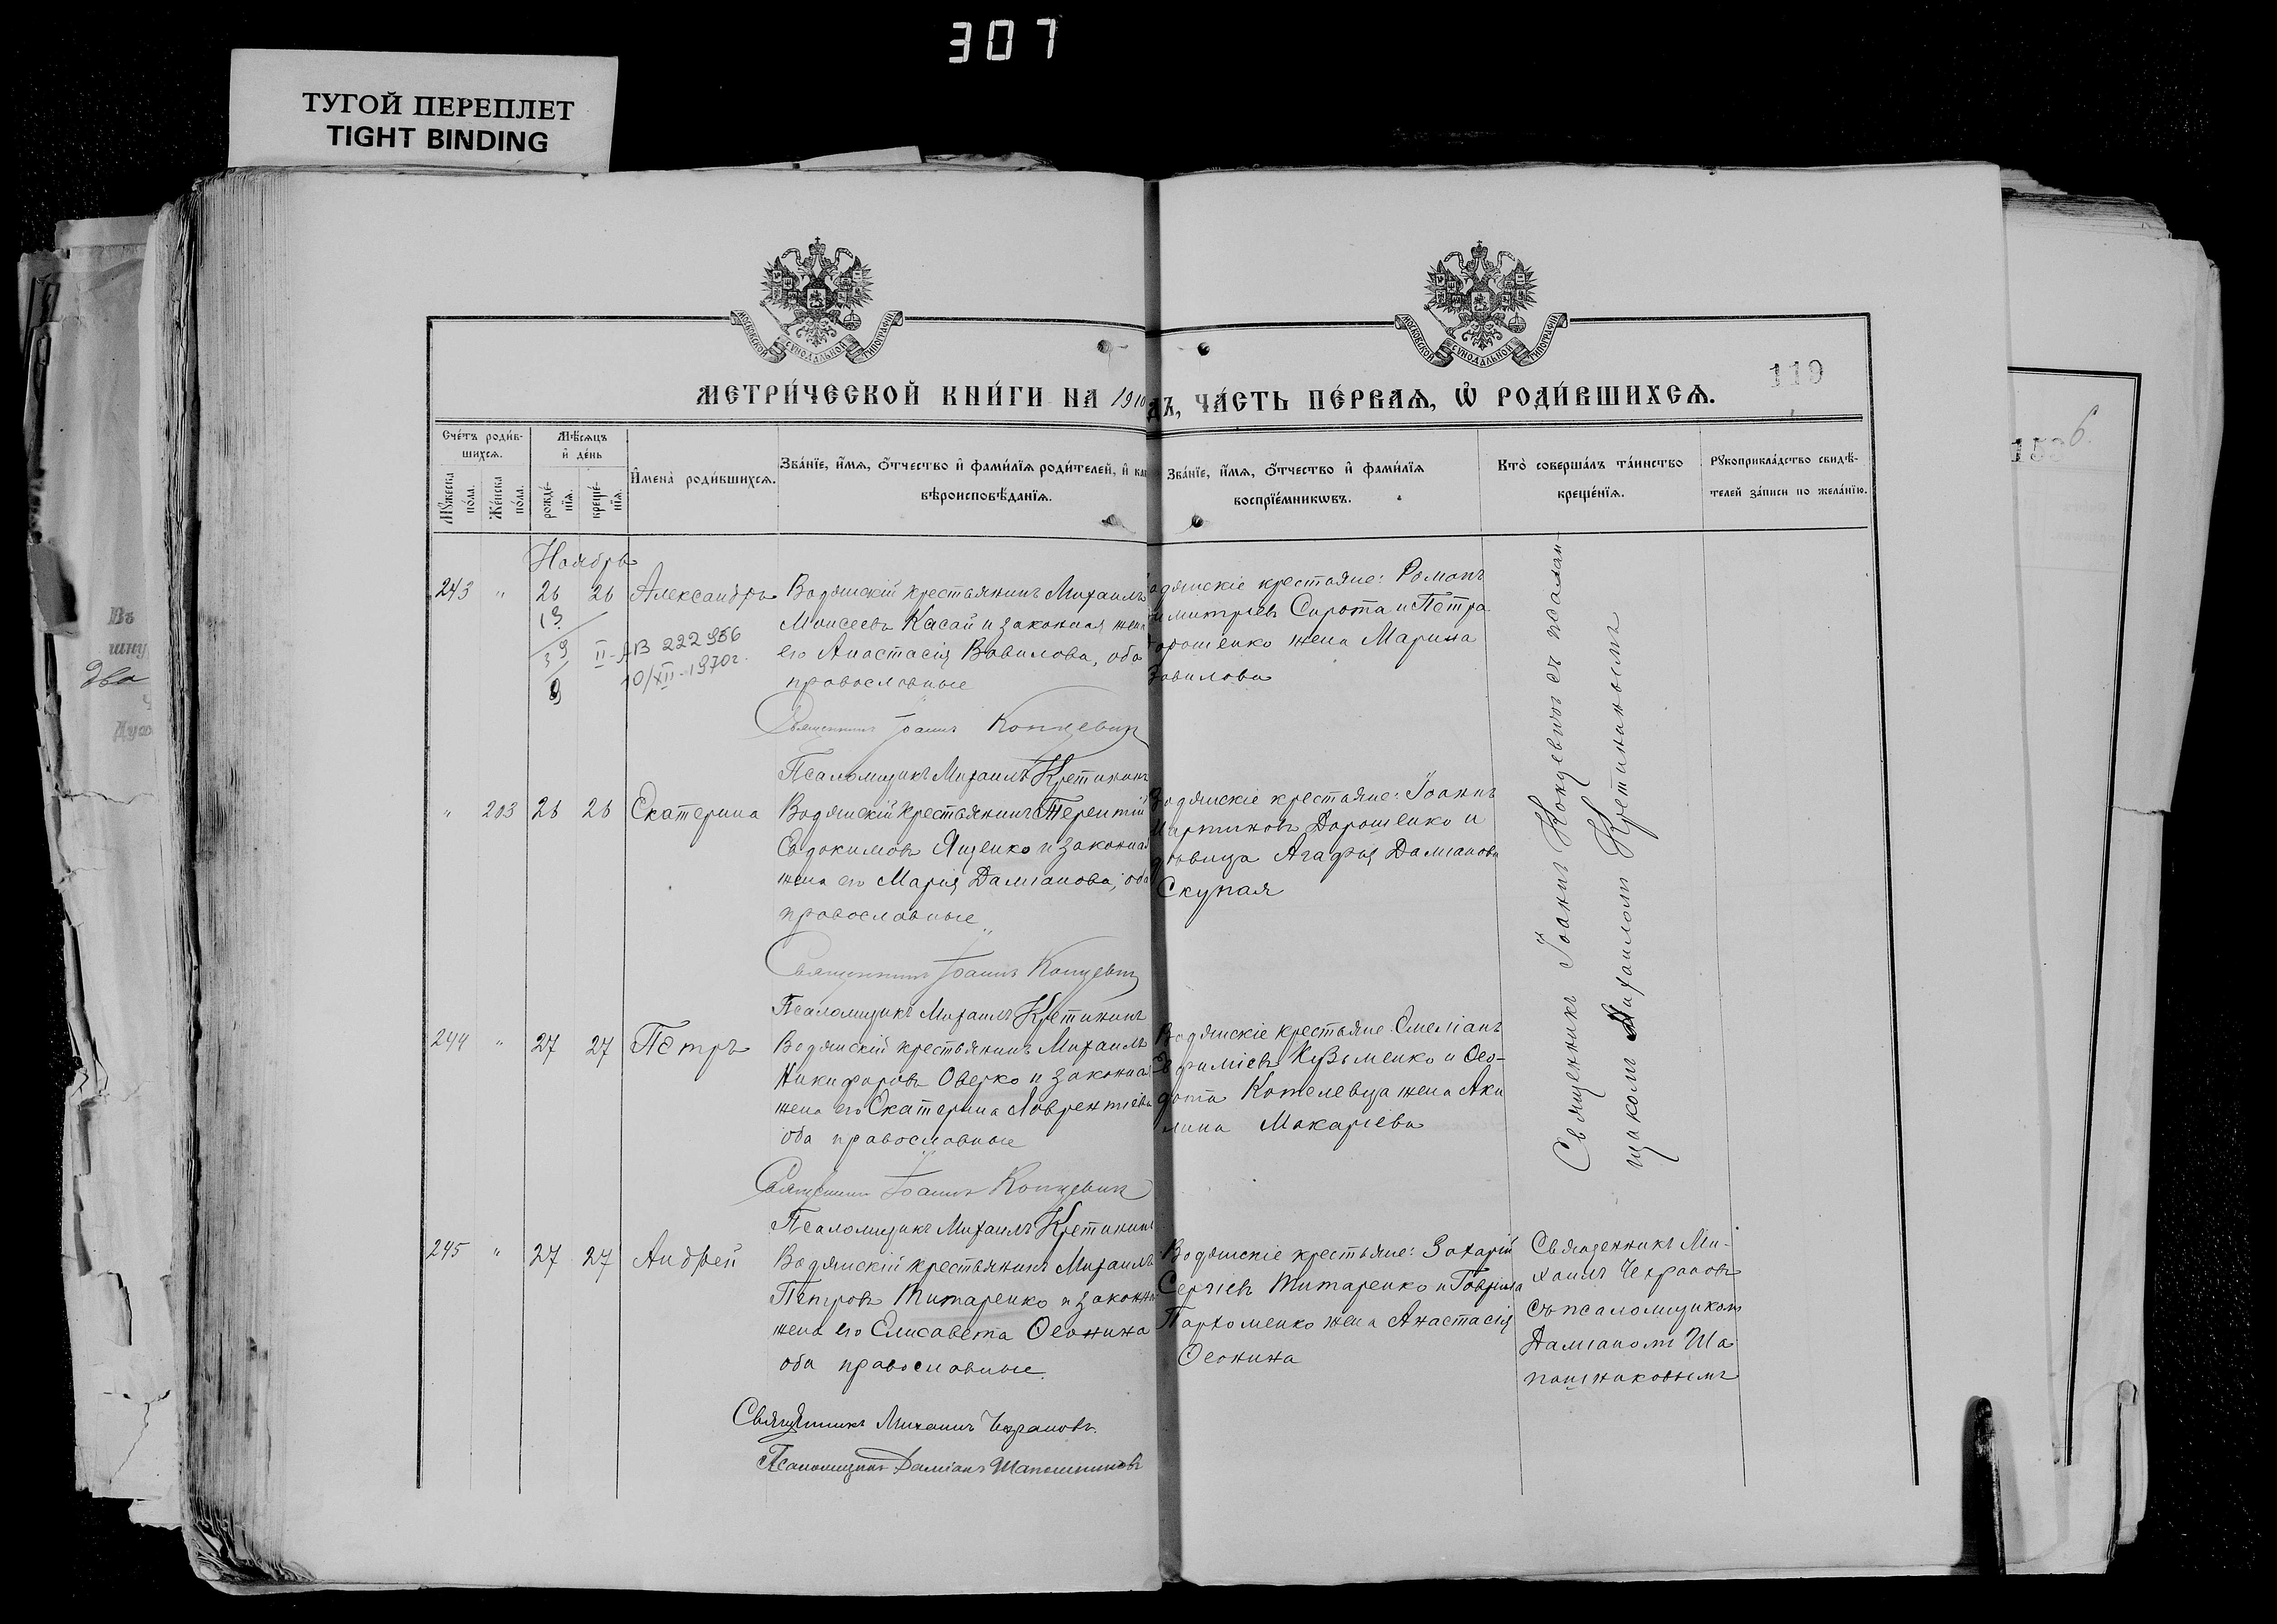 307
ТУГОЙ ПЕРЕПЛЕТ
TIGHT BINDING
МОСКОВСКОЙ СѴНОДАЛЬНОЙ ТИПОГРАФІИ
МОСКОВСКОЙ СѴНОДАЛЬНОЙ ТИПОГРАФІИ
119
МЕТРИ́ЧЕСКОЙ КНИ́ГИ НА 1910 ДЪ, ЧА́СТЬ ПЕ́РВАѦ, Ѡ РОДИ́ВШИХСѦ.
Сче́тъ роди́в-
шихсѧ.
Мꙋ́жеска по́ла.
Же́нска по́ла.
Мѣ́сѧцъ
и де́нь
рожде́-
нїѧ.
креще́-
нїѧ.
Имена̀ роди́вшихсѧ.
Зва́нїе, и́мѧ, о́тчество и фами́лїѧ роди́телей, и как
вѣроисповѣ́данїѧ.
Зва́нїе, и́мѧ, о́тчество и фами́лїѧ
воспрїе́мникѡвъ.
Кто̀ соверша́лъ та́инство
креще́нїѧ.
Рꙋкоприкла́дство свидѣ́-
телей за́писи по жела́нїю.
Ноябрь
243 " 26 26 Александръ
Водянскій крестьянинъ Михаилъ
Моисеевъ Касай и законная жена
его Анастасія Вавилова, оба
православные
II-АВ 222956
10/XII-1970г.
Священникъ Іоаннъ Концевич
Псаломщикъ Михаилъ Кретининъ
одянскіе крестьяне: Романъ
имитріевъ Сирота и Петра
орошенко жена Марина
Вавилова
" 203 26 26 Екатерина
Водянскій крестьянинъ Терентій
Евдокимовъ Яценко и законная
жена его Марія Даміанова, оба
православные
Священникъ Іоаннъ Концевич
Псаломщикъ Михаилъ Кретининъ
Водянскіе крестьяне: Іоаннъ
Мартиновъ Дорошенко и
девица Агафія Даміанова
Скупая
244 " 27 27 Петръ
Водянскій крестьянинъ Михаилъ
Никифоровъ Оверко и законная
жена его Екатерина Лаврентіева
оба православные
Священникъ Іоаннъ Концевич
Псаломщикъ Михаилъ Кретининъ
Водянскіе крестьяне Емеліанъ
Ефиміевъ Кузьменко и Ѳео-
дота Котелевца жена Аки
лина Макаріева
Священникъ Іоаннъ Концевичъ съ псалом-
щикомъ Михаиломъ Кретининымъ
245 " 27 27 Андрей
Водянскій крестьянинъ Михаилъ
Петровъ Титаренко и законн
жена его Елисавета Ѳеонина
оба православные.
Священникъ Михаилъ Чехрановъ.
Псаломщикъ Даміанъ Шапошниковъ
Водянскіе крестьяне: Захарій
Сергіевъ Титаренко и Гавріила
Пархоменко жена Анастасія
Ѳеонина
Священникъ Ми-
хаилъ Чехрановъ
съ псаломщикомъ
Даміаномъ Ша
пошниковымъ
Въ
шну
Два
6.